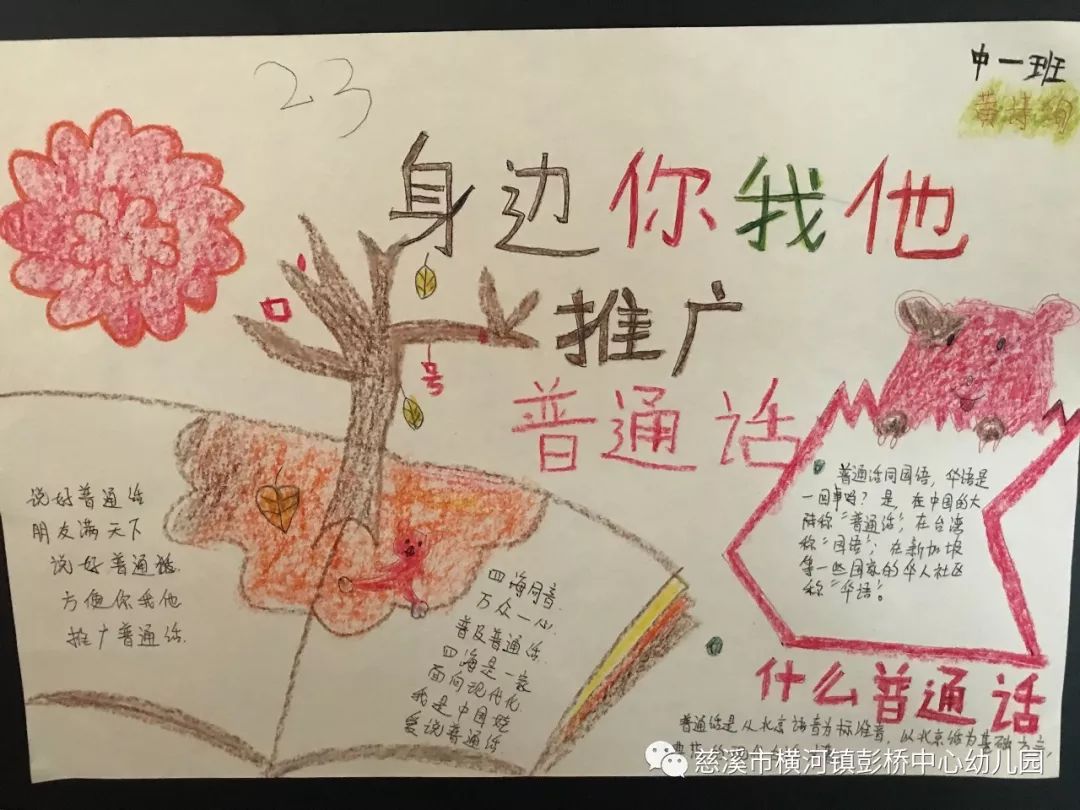 23
中一班
黄诗
身边你我他
推广
普通话
口
号
说好普通话
朋友满天下
说好普通话
方便你我他
推广普通话
四海同音
万众一心
普及普通话
四海是一家
面向现代化
我是中国娃
爱说普通话
普通话同国语,华语是
一回事吗?是,在中国的大
陆称"普通话",在台湾
称"国语";在新加坡
等一些国家的华人社区
称"华语"。
什么普通话
普通话是以北京语音为标准音,以北京话为基础方言,
慈溪市横河镇彭桥中心幼儿园